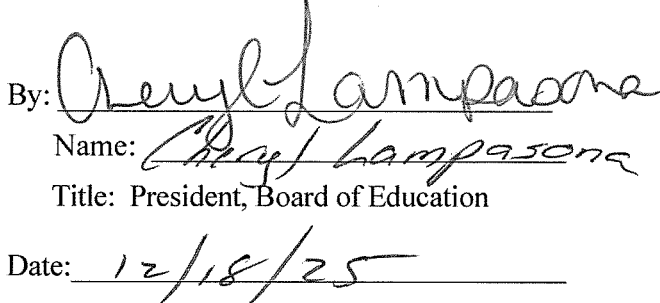 By: Cheryl Lampasona
Name: Cheryl Lampasona
Title: President, Board of Education
Date: 12/18/25